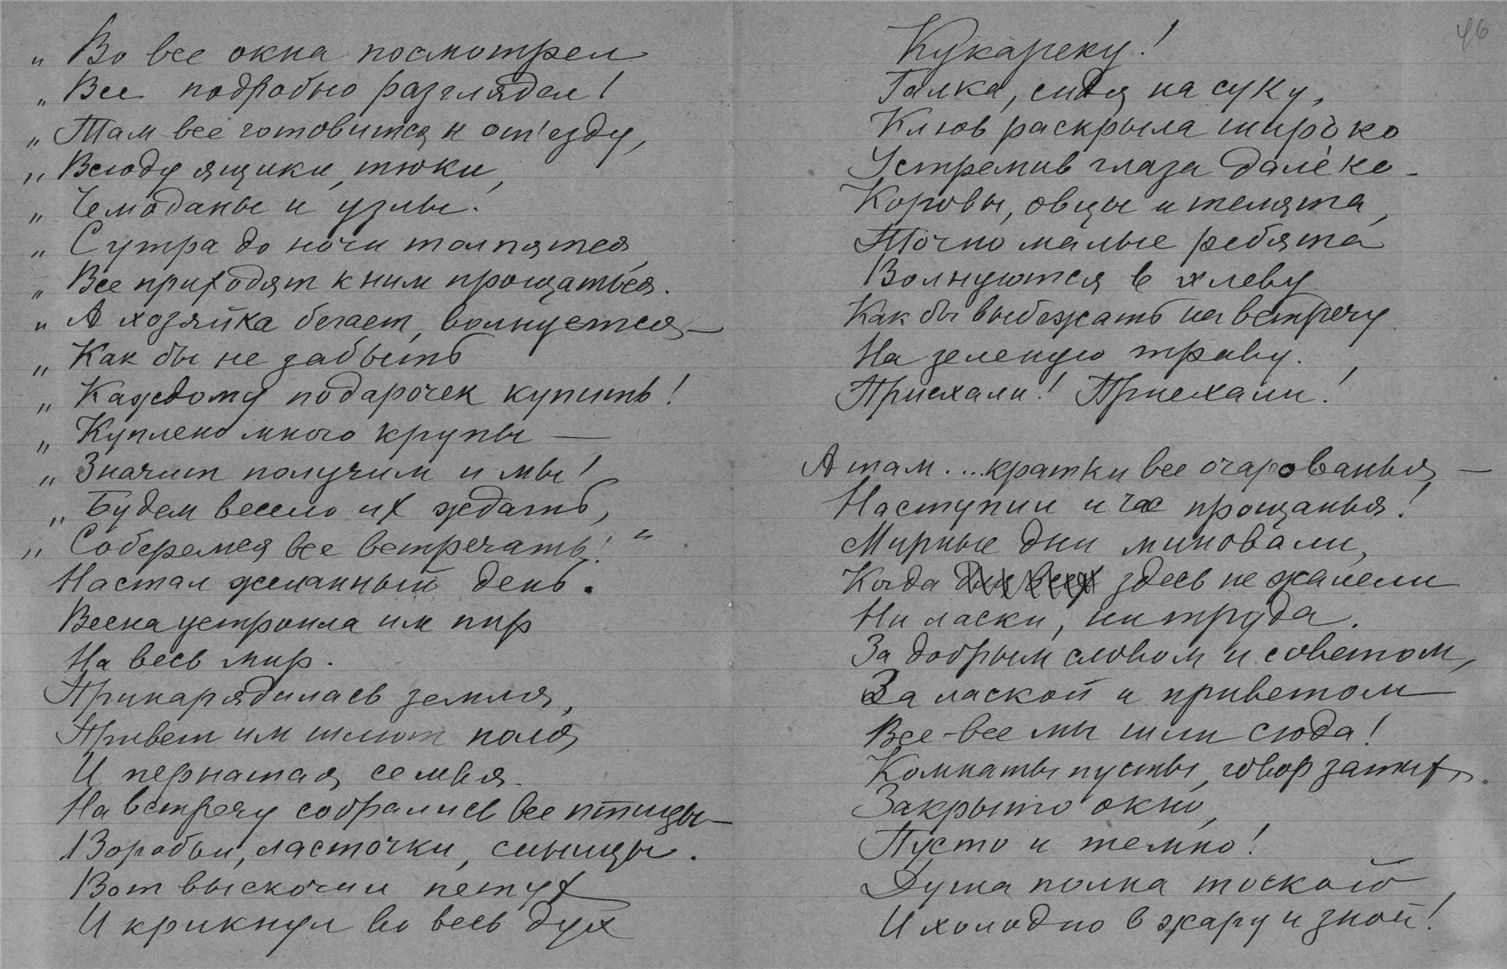 „ Во все окна посмотрел
„ Все подробно разглядел!
„ Там все готовится к от'езду,
„ Всюду ящики, тюки,
„ Чемоданы и узлы.
„ С утра до ночи толпятся,
„ Все приходят к ним прощаться.
„ А хозяйка бегает, волнуется, —
„ Как бы не забыть
„ Каждому подарочек купить!
„ Куплено много крупы —
„ Значит получим и мы!
„ Будем весело их ждать,
„ Соберемся все встречать!"
Настал желанный день.
Весна устроила им пир
На весь мир.
Принарядилась земля,
Привет им шлют поля,
И пернатая семья.
На встречу собрались все птицы —
Воробьи, ласточки, синицы.
Вот выскочил петух
И крикнул во весь дух
46
Кукареку!
Галка, сидя на суку,
Клюв раскрыла широко
Устремив глаза далёко —
Коровы, овцы и телята,
Точно малые ребята
Волнуются в хлеву
Как бы выбежать на встречу
На зеленую траву.
Приехали! Приехали!
А там....кратки все очарованья, —
Наступил и час прощанья!
Мирные дни миновали,
Когда здесь не жалели
Ни ласки, ни труда.
За добрым словом и советом,
За лаской и приветом
Все-все мы шли сюда!
Комнаты пусты, говор затих,
Закрыто окно,
Пусто и темно!
Душа полна тоскою,
И холодно в жару и зной!